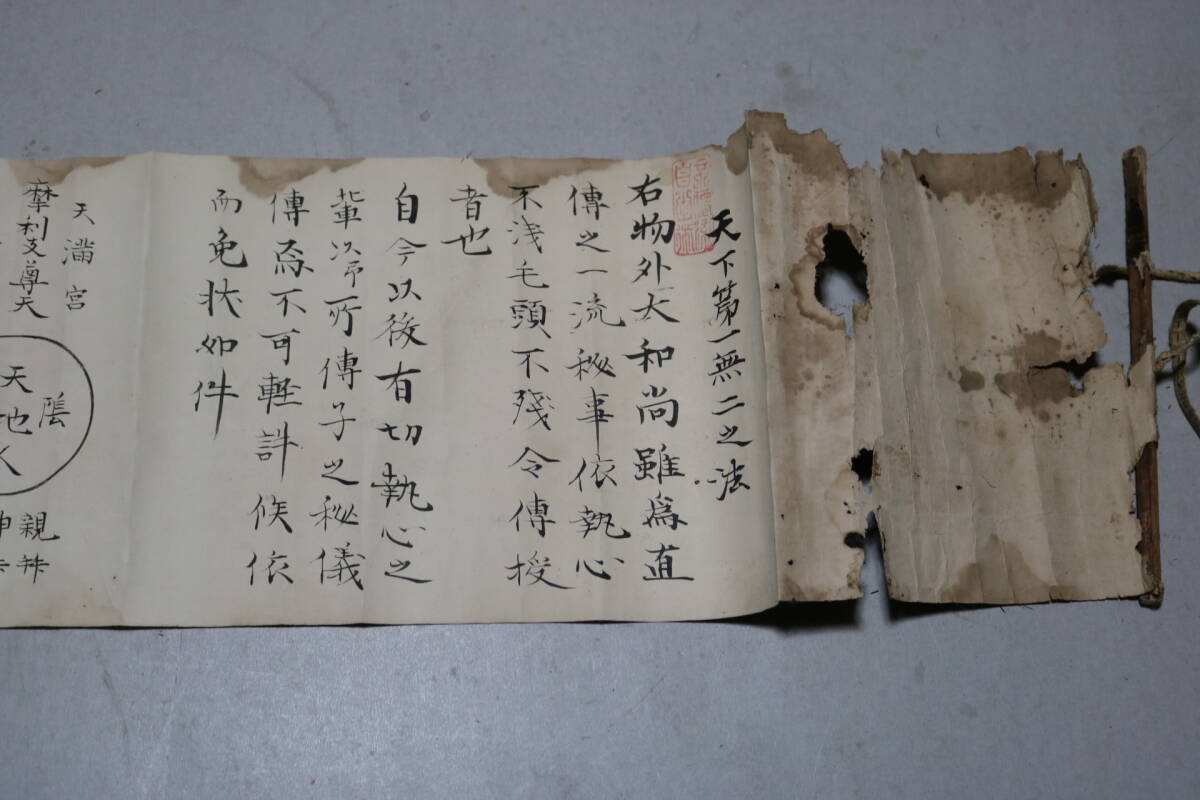 天下第一無二之法
右物外大和尚雖為直
傳之一流秘事依執心
不浅毛頭不残令傳授
者也
自今以後有切執心之
輩以所傳子之秘儀
傳為不可軽許候依
而免状如件
天満宮
摩利支尊天
陰
天地人
親